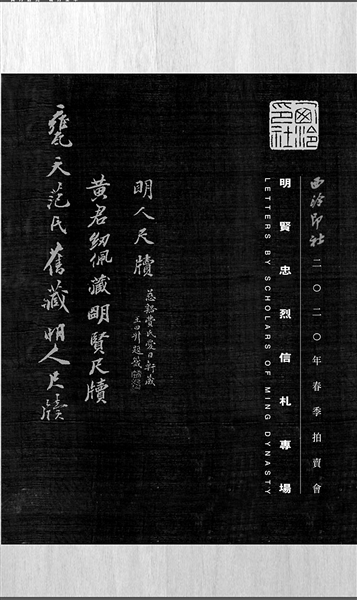 西泠印社
西泠印社 二〇二〇年春季拍賣會
明賢忠烈信札專場
LETTERS BY SCHOLARS OF MING DYNASTY
明人尺牘
慈谿費氏愛日軒藏
黃君幼佩藏明賢尺牘
甕天范氏舊藏明人尺牘